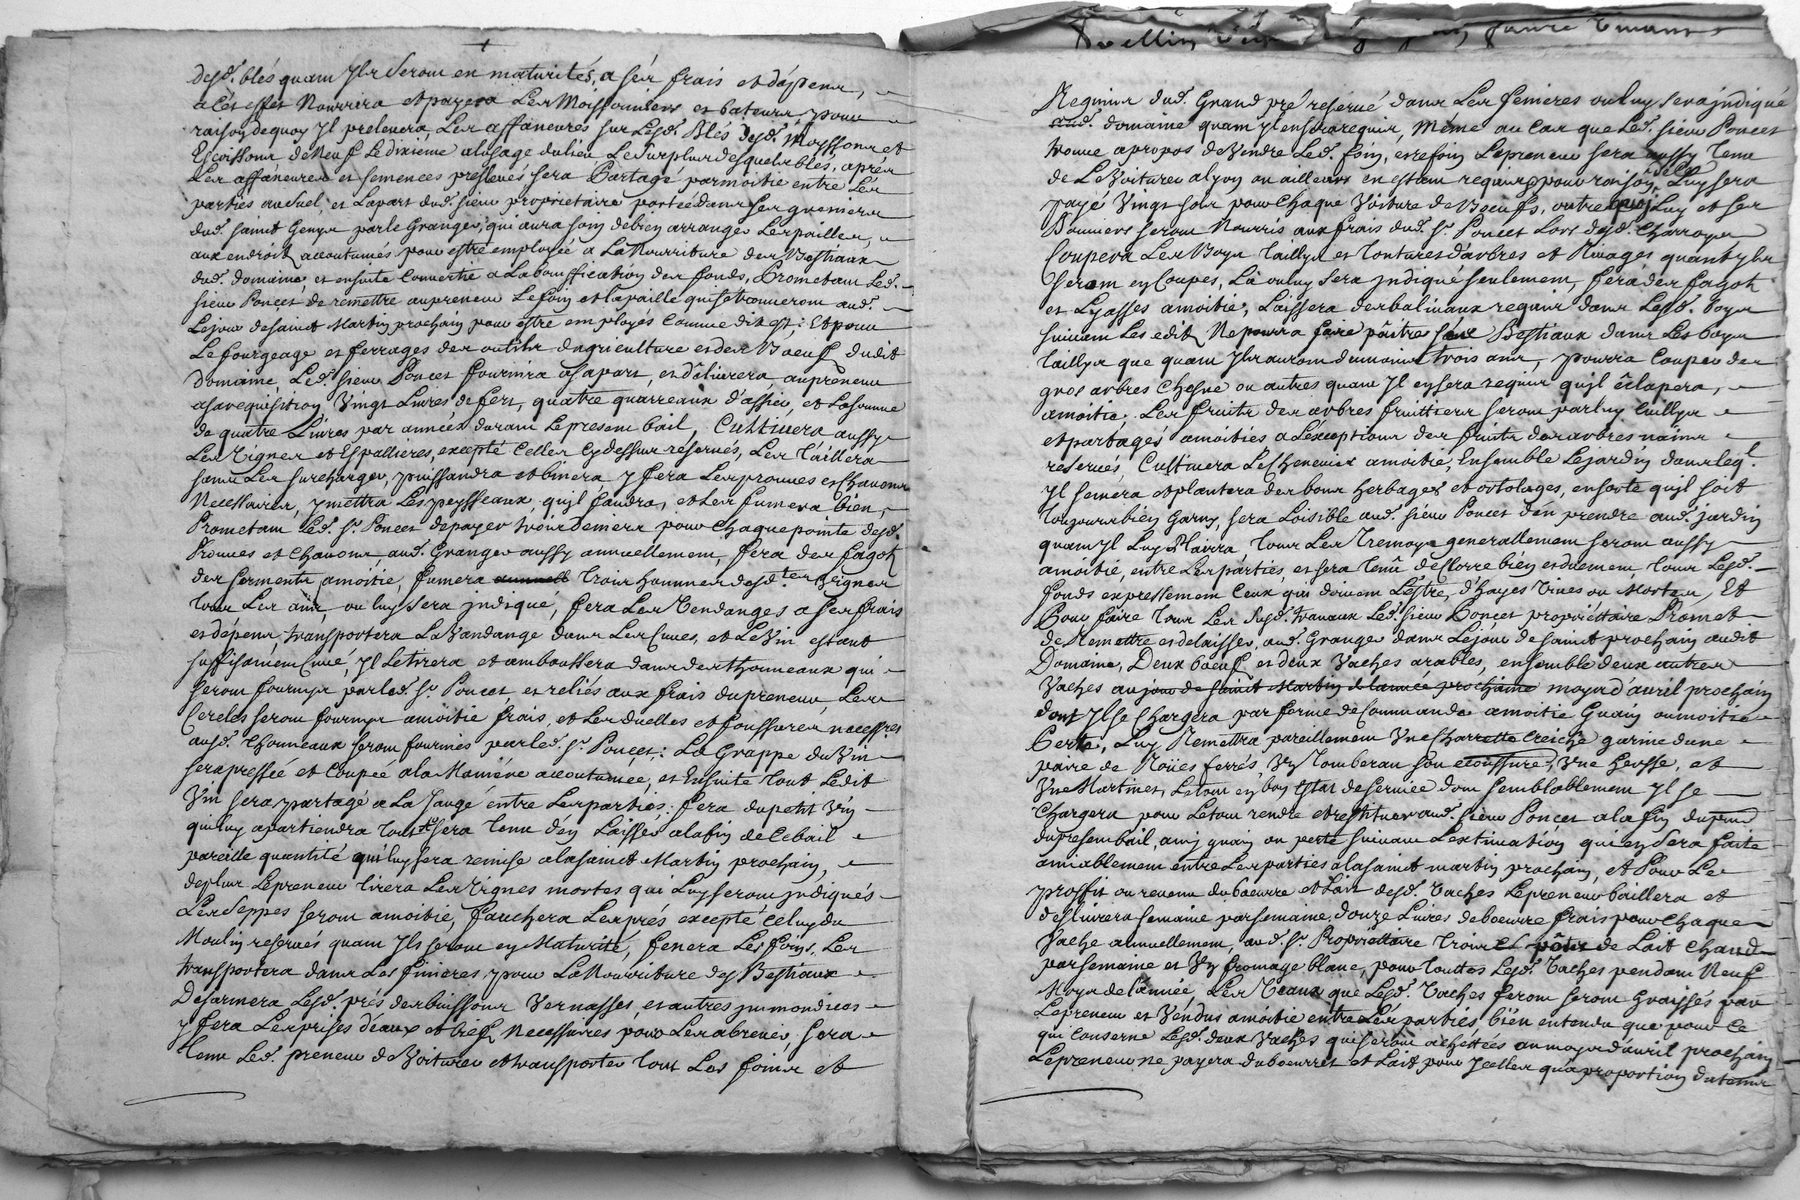 desd. blés quam Ils Serom en maturités, a sés frais et dépens,
a Cés effet Nourrira et payera Les Moissonniers et bateurs pour
raison dequoy Il prelevera Les affaneures sur Lesd. Blés desd. Moyssons et
Escossons de Neuf Le dixieme alusage dulieu Le Surplus desquels blés, aprés
Les affaneures et semences preslevés sera Partagé par moitié entre Les
parties au Suel, et La part dud. sieur proprietaire portée dans ses greniers
dud. saint Genys par le Granger, qui aura soin debien arranger Les pailles,
aux endroit accoutumés pour estre employée a La Nourriture des Bestiaux
dud. domaine, et ensuite Convertie a La bonification des fonds, Prometam Led.
sieur Poncet de remettre au preneur Le foin et La paille qui se trouverom aud.
Lejour de saint Martin prochain pour estre employés Comme dit est; Et pour
Le fourgeage et ferrages des outils dagriculture et des Boeufs dudit
domaine, Led. sieur Poncet fournira a sa part, et délivrera au préneur
a sa requisition Vingt Livres de fert, quatre quarreaux d'assier, et La somme
de quatre Livres par années durant Le present bail, Cultivera aussy
Les Vignes et Espalliers, excepté Celles Cy dessus reservés, Les Taillera
sans Les surcharger, puissandra et binera y fera Les prouves et Chavons
Necessaires, y mettra Les peysseaux quil faudra, et Les fumera bien,
Prometam Led. Sr. Poncet de payer trois deniers pour Chaque pointe desd.
Prouves et Chavons aud. Granger aussy annuellement, fera des fagots
des serments amoitié, fumera annuell trois hommées desd. tes Vignes
tous Les ans, ou luy sera jndiqué, fera Les Vendanges a ses frais
et dépens, transportera La Vandange dans Les Cuves, et Le Vin estant
suffisamem Cuvé, Il Le tirera et amboussera dans des thonneaux qui
serom fournys par led. Sr. Poncet, et reliés aux frais du preneur, Les
Cercles serom fournys amoitié frais, et Les duelles et fonssures necessres
ausd. thonneaux serom fournies par led. Sr. Poncet; La Grappe du Vin
sera pressée et Coupée a la Maniére accoutumée, et Ensuite tout Ledit
Vin sera partagé a La Jauge entre Les parties. fera du petit Vin
qui luy apartiendra tout & sera tenu d'en Laisser a la fin de Ce bail
pareille quantité qui luy sera remise a la saint Martin prochain,
de plus Le preneur tirera Les Vignes mortes qui Luy serom jndiqués
Les Seppes serom amoitié, fauchera Les prés excepté Celuy du
Moulin reservés quam Ils serom en Maturité, fenera Les foins, Les
transportera dans Les finieres, pour La Nourriture des Bestiaux
Desarmera Lesd. prés des buissons Vernasses, et autres jmmondices
y fera Les prises d'eaux et biefs Necessaires pour Les abrever, sera
tenu Led. preneur de Voiturer et transporter tous Les foins et
Reguins dud. Grand pré réservé dans Les fenieres ou luy sera jndiqué
aud. domaine quam Il en sera requis, Même au Cas que Led. sieur Poncet
trouve a propos de Vendre Led. foin, et refoin Le preneur sera aussy tenu
de Le Voiturer a Lyon ou ailleurs en estam requis, pour raison de Luy sera
payé Vingt sols pour Chaque Voiture de Boeufs, outre quoj Luy et ses
Bouviers serom Nourris aux frais dud. Sr. Poncet Lors desd. Charroys
Coupera Les Boys taillys et tontures d'arbres et Rivages quant Ils
serom en Coupes, La ou luy sera jndiqué seulement, féra des fagots
et Lyasses amoitié, Laissera des balivaux requis dans Lesd. boys
suivam Les edits Ne pourra faire paître ses Bestiaux dans Les boys
taillys que quam Ils aurom du moins trois ans, pourra Couper des
gros arbres Chesne ou autres quam Il en sera requis quil éclapera,
amoitié. Les fruits des arbres fruittiers serom par luy Cuillys
et partagés amoitiés a L'exceptions des fruits des arbres nains
reservés, Cultivera Le Chenevier amoitié, Ensemble Le jardin dans leql.
Il semera et plantera des bons herbages et ortolages, en sorte quil soit
toujours bien Garny, sera Loisible aud. sieur Poncet d'en prendre aud. jardin
quam Il Luy Plairra, tous Les Tremoys generallemem serom aussy
amoitié, entre Les parties, et sera tenu de clorre bién et duement tous Lesd.
fonds expressémem Ceux qui doivem L'estre, d'hayes Vives ou Mortes, Et
Pour faire tous Les susd. travaux Led. sieur Poncet propriéttaire Promet
de Remettre et delaisser, aud. Granger dans Le jour de saint prochain audit
Domaine, Deux boeufs et deux Vaches arables, ensemble deux autres
Vaches au jour de saint Martin de lannée prochaine moys d'avril prochain
dont Il se Chargera par forme de Commande amoitié Guain ou moitié
Perte, Luy Remettra pareillement Vne Charrette Creiche garnie d'une
paire de Roües ferrés, Vn tomberau son etouffure, Vne hersse, et
Vne Martines, Le tout en bon Estat de service dom semblablement Il se
Chargera pour Le tout rendre et restituer aud. sieur Poncet a la fin du pnd
du presem bail, aux guain ou perte suivam L'estimation qui en sera faite
amiablement entre Les parties a la saint martin prochain, et Pour Les
proffit ou revenu du boeurre et Lait desd. Vaches Le preneur baillera et
deslivrera semaine par semaine, douze Livres de boeurre frais pour Chaque
Vache annuellement, aud. Sr. Propriettaire trois pôts de Lait Chaud
par semaine et Vn fromage blanc, pour touttes Lesd. Vaches pendam Neuf
Moys de Lannée Les Veaux que Lesd. Vaches ferom serom Graissés par
Le preneur et Véndus amoitié entre Les parties, bién entendu que pour Ce
qui Conserne Lesd. deux Vaches qui serom achettées au moys d'avril prochain
Le preneur ne payera du boeurre et Lait pour Jcelles qu'a proportion du tems